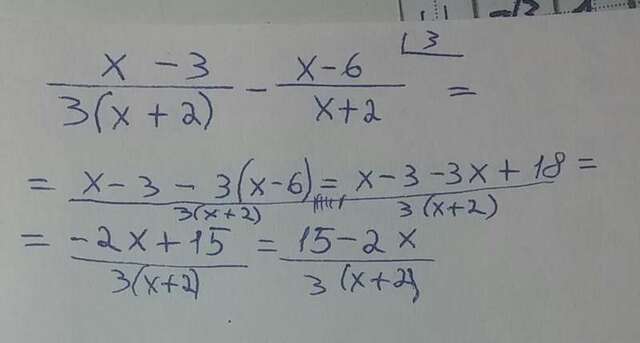 (x - 3)/(3(x + 2)) - (x - 6)/(x + 2) ⌊3 =
= (x - 3 - 3(x - 6))/(3(x + 2)) = (x - 3 - 3x + 18)/(3(x + 2)) =
= (-2x + 15)/(3(x + 2)) = (15 - 2x)/(3(x + 2))